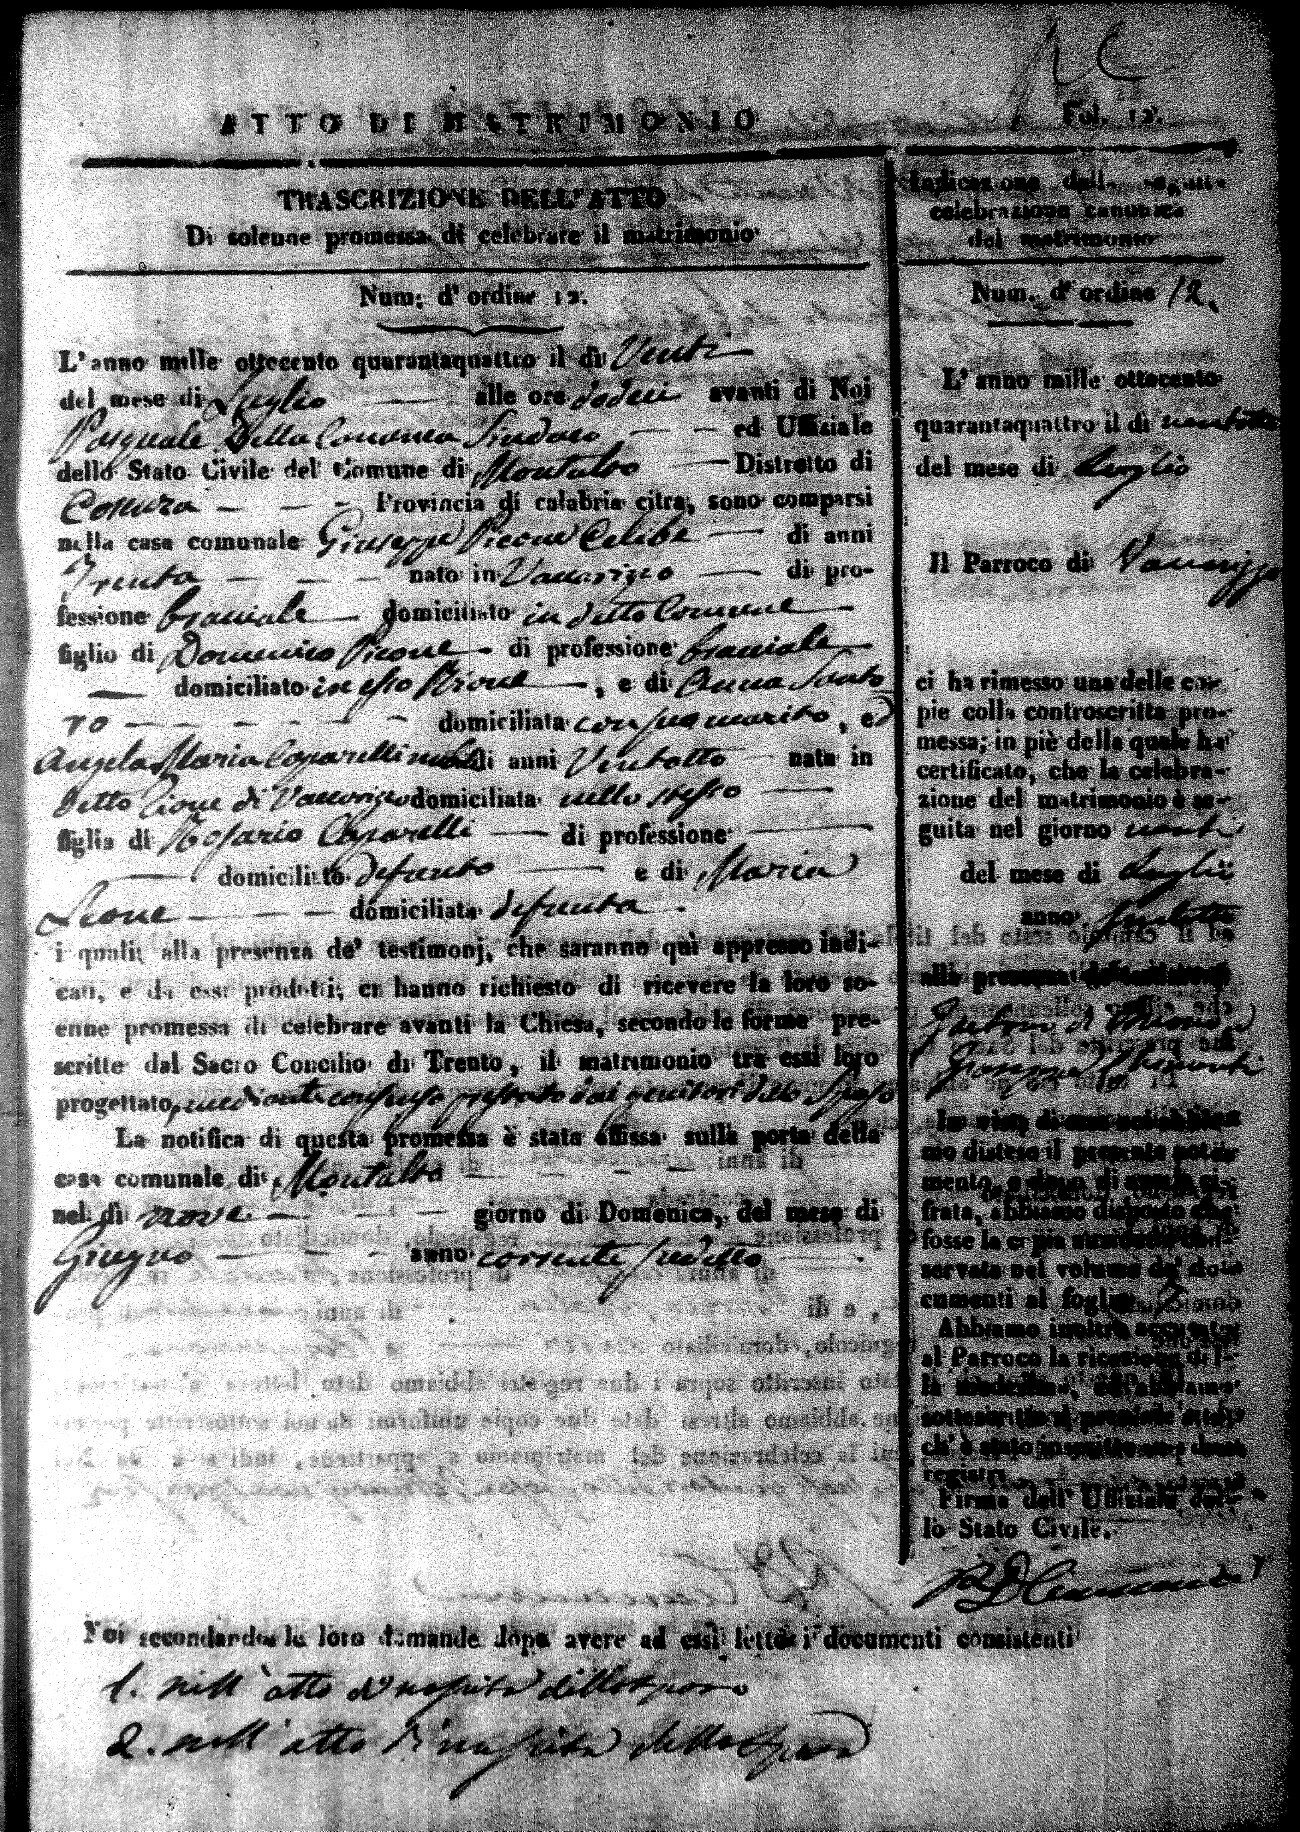 ATTO DI MATRIMONIO
Fol. 12.
TRASCRIZIONE DELL'ATTO
Di solenne promessa di celebrare il matrimonio
Num: d'ordine 12.
L'anno mille ottocento quarantaquattro il dì Venti
del mese di Luglio alle ore dodeci avanti di Noi
Pasquale Della Sindaco ed Uffiziale
dello Stato Civile del Comune di Montalto Distretto di
Cosenza Provincia di calabria citra, sono comparsi
nella casa comunale Giuseppe Picone Celibe di anni
Trenta nato in Vaccarizzo di pro-
fessione bracciale domiciliato in detto Comune
figlio di Domenico Picone di professione bracciale
domiciliato in esso Rione, e di Anna Santo
ro domiciliata con suo marito, ed
Angela Maria Caparelli nubile di anni Ventotto nata in
detto Rione di Vaccarizzo domiciliata nello stesso
figlia di Rosario Caparelli di professione
domiciliato defunto e di Maria
Leone domiciliata defunta.
i quali alla presenza de' testimonj, che saranno quì appresso indi-
cati, e da essi prodotti; ci hanno richiesto di ricevere la loro so-
enne promessa di celebrare avanti la Chiesa, secondo le forme pre-
scritte dal Sacro Concilio di Trento, il matrimonio tra essi loro
progettato, mediante consenso prestato dai genitori dello Sposo
La notifica di questa promessa è stata affissa sulla porta della
casa comunale di Montalto
nel dì nove giorno di Domenica, del mese di
Giugno anno corrente suddetto
Noi secondando la loro domande dopo avere ad essi letto i documenti consistenti
1. nell'atto di nascita dello sposo
2. nell'atto di nascita della sposa
Indicazione della seguita
celebrazione canonica
del matrimonio
Num. d'ordine 12.
L'anno mille ottocento
quarantaquattro il di ventotto
del mese di Luglio
Il Parroco di Vaccarizzo
ci ha rimesso una delle co-
pie colla controscritta pro-
messa; in piè della quale ha
certificato, che la celebra-
zione del matrimonio è se-
guita nel giorno venti
del mese di Luglio
anno
alla presenza
Giuseppe
In vista di essa noi abbia-
mo disteso il presente notа-
mento, e dopo di averla ci-
frata, abbiamo disposto che
fosse la copia suddetta con-
servata nel volume de' docu-
cumenti al foglio
Abbiamo inoltre accusato
al Parroco la ricezione del-
la medesima, ed abbiamo
sottoscritto il presente atto,
ch'è stato inscritto su i due
registri
Firma dell'Uffiziale del-
lo Stato Civile.